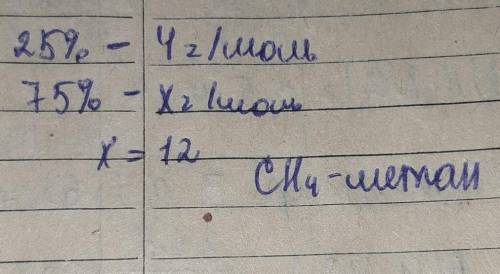 25% - 4 г/моль
75% - x г/моль
x = 12
CH₄ - метан